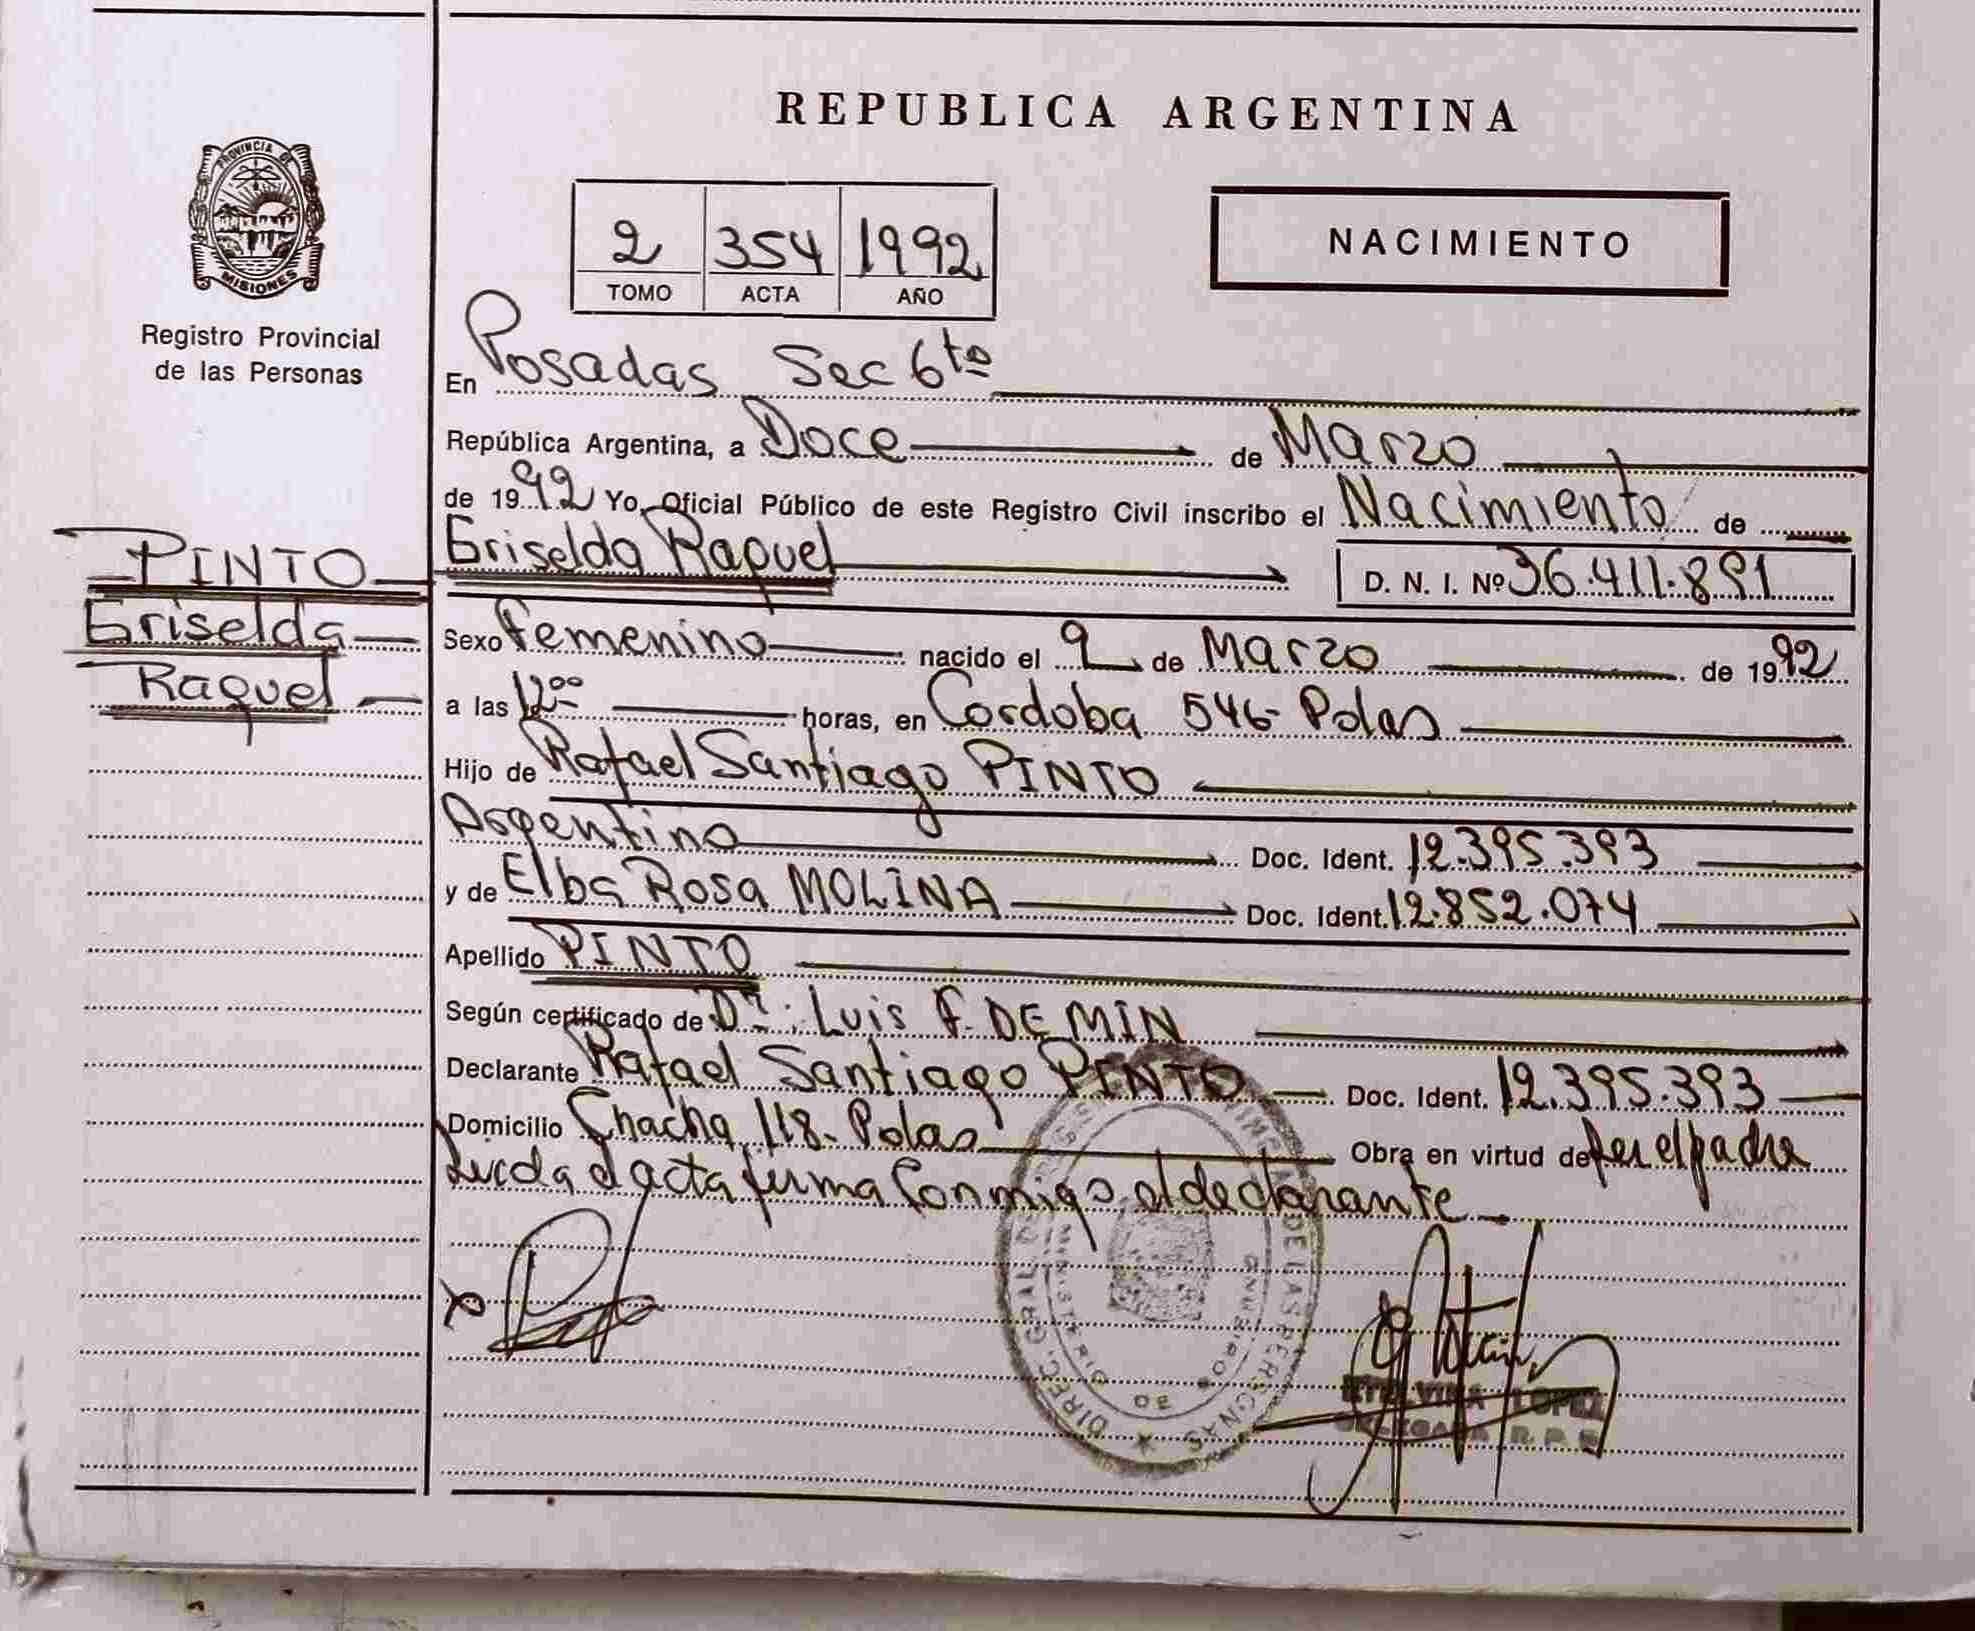 REPUBLICA ARGENTINA
PROVINCIA DE
MISIONES
Registro Provincial
de las Personas
2 354 1992
TOMO ACTA AÑO
NACIMIENTO
En Posadas Sec 6ta
República Argentina, a Doce de Marzo
de 1992 Yo, Oficial Público de este Registro Civil inscribo el Nacimiento de
PINTO
Griselda
Raquel
Griselda Raquel D. N. I. Nº 36.411.891
Sexo Femenino nacido el 9 de Marzo de 1992
a las 12⁰⁰ horas, en Cordoba 546- Pdas
Hijo de Rafael Santiago PINTO
Argentino Doc. Ident. 12.395.393
y de Elba Rosa MOLINA Doc. Ident. 12.852.074
Apellido PINTO
Según certificado de Dr. Luis F. DEMIN
Declarante Rafael Santiago PINTO Doc. Ident. 12.395.393
Domicilio Chacha 118- Pdas Obra en virtud de ser el padre
Leida el acta firma Conmigo el declarante
DIREC. GRAL DE LAS PERSONAS
MINISTERIO DE GOBIERNO
LOPEZ
R. P. P.